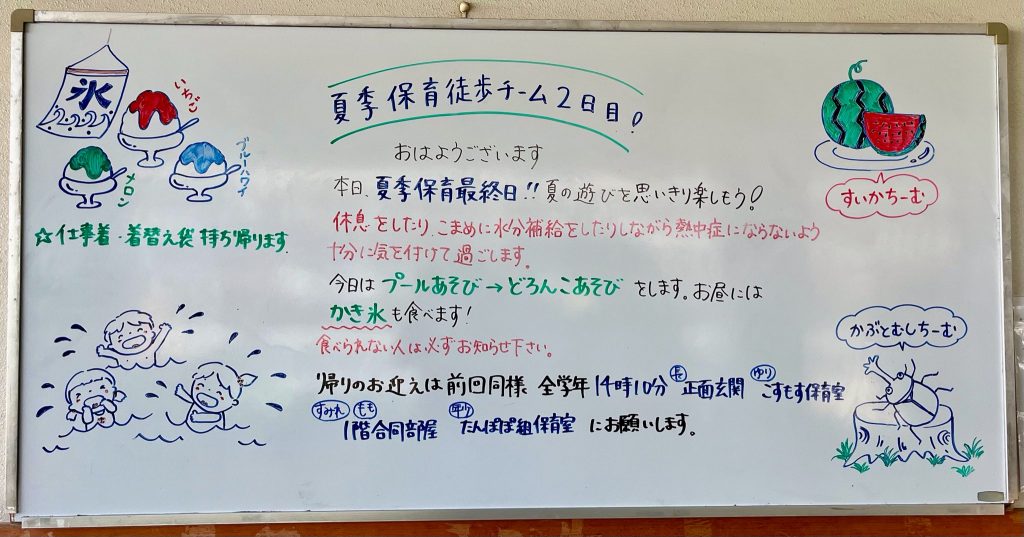 氷
いちご
メロン
ブルーハワイ
☆仕事着・着替え袋 持ち帰ります
夏季保育徒歩チーム2日目!
おはようございます
本日、夏季保育最終日!!夏の遊びを思いきり楽しもう!
休息をしたり、こまめに水分補給をしたりしながら熱中症にならないよう
十分に気を付けて過ごします。
今日は プールあそび→どろんこあそび をします。お昼には
かき氷も食べます!
食べられない人は必ずお知らせ下さい。
帰りのお迎えは前回同様 全学年14時10分 正面玄関 ゆり こすもす保育室
すみれ もも 1階合同部屋 たんぽぽ組保育室 にお願いします。
すいかちーむ
かぶとむしちーむ